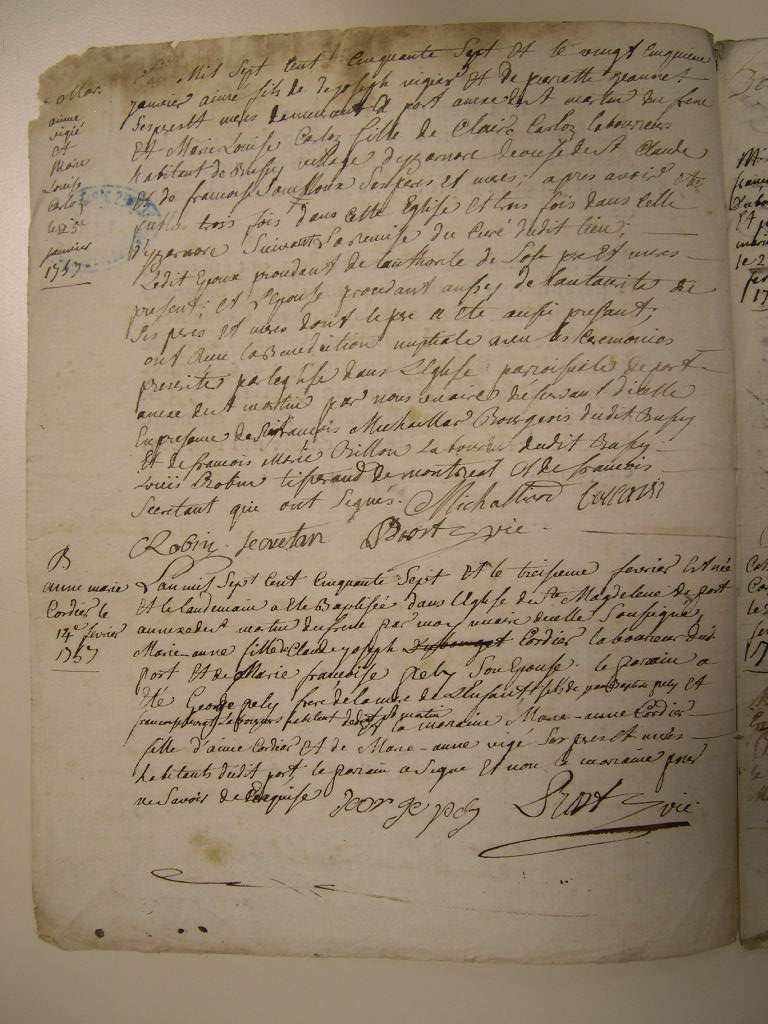 Mar.
aimé
vigié
et
Marie
Louise
Carloz
le 25e
janvier
1757
Mil Sept Cent Cinquante Sept et le vingt Cinquieme
janvier aimé fils de joseph vigier et de pierrette jeannet
ses pere et mere demeurant de port annexe de st martin du frene
et Marie Louise Carloz fille de Claude Carloz laboureur
habitant de Bussy village d'yzernore diocese de St Claude
et de francoise ses pere et mere; apres avoir ete
publiés trois fois dans cette Eglise et trois fois dans celle
d'yzernore Suivant la remise du Curé dudit lieu;
Ledit Epoux procedant de l'authorité de ses pere et mere
present; et l'Epouse procedant aussy de l'autorité de
ses pere et mere dont le pere a été aussi present;
ont Recu la Benediction nuptiale avec les ceremonies
prescrites par l'eglise dans l'Eglise paroissiale de port
annexe de st martin par nous vicaire déservant d'icelle
En presence de Sr francois Michallard Bourgeois dudit Bussy
Et de francois Marie Billon laboureur dudit Bussy
Louis Robin tisserand de montreal et de francois
Secretant qui ont signés. Michallard
Robin Secretan vic.
B
anne marie
Cordier le
14e fevrier
1757
L'an mil Sept Cent Cinquante Sept et le treisieme fevrier est née
et le lendemain a ete Baptisée dans l'Eglise de Ste Magdelene de port
annexe de st martin du frene par moy vicaire d'icelle Soussigné
Marie-anne fille de Claude joseph Cordier laboureur dudit
port et de Marie francoise pely son Epouse. le parain a
été George pely frere de la mere de l'Enfant fils de pely et
habitant dudit st martin et la maraine Marie-anne Cordier
fille d'aimé Cordier et de Marie-anne vigé ses pere et mere
habitants dudit port, le parain a signé Et non la maraine pour
ne Savoir de Enquise Jeorge pely vic.